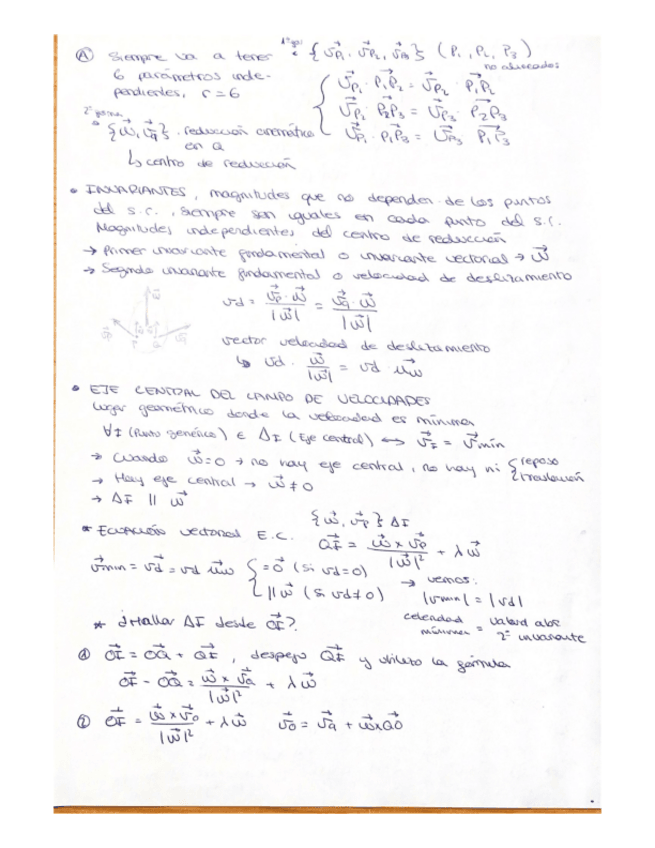 Ⓐ Siempre va a tener
6 parámetros inde-
pendientes, r=6
1ª forma {v⃗P₁, v⃗P₂, v⃗P₃} (P₁, P₂, P₃)
no alineados
v⃗P₁ · P₁P₂ = v⃗P₂ · P₁P₂
v⃗P₂ · P₂P₃ = v⃗P₃ · P₂P₃
v⃗P₁ · P₁P₃ = v⃗P₃ P₁P₃
2ª forma
{ω⃗, v⃗Q}. reducción cinemática
en Q
↳ centro de reducción
• INVARIANTES, magnitudes que no dependen de los puntos
del s.c., siempre son iguales en cada punto del s.c.
Magnitudes independientes del centro de reducción
→ Primer invariante fundamental o invariante vectorial → ω⃗
→ Segundo invariante fundamental o velocidad de deslizamiento
vd = v⃗P · ω⃗ / |ω⃗| = v⃗Q · ω⃗ / |ω⃗|
vector velocidad de deslizamiento
↳ vd · ω⃗ / |ω⃗| = vd · u⃗ω
• EJE CENTRAL DEL CAMPO DE VELOCIDADES
Lugar geométrico donde la velocidad es mínima
∀I (Punto genérico) ∈ ΔI (Eje central) ↔ v⃗I = v⃗mín
→ Cuando ω⃗=0 → no hay eje central, no hay ni { reposo
traslación
→ Hay eje central → ω⃗ ≠ 0
→ ΔI || ω⃗
{ω⃗, v⃗P} ΔI
* Ecuación vectorial E.C. QI = ω⃗ x v⃗P / |ω⃗|² + λω⃗
v⃗min = v⃗d = vd u⃗ω { = 0⃗ (si vd=0)
|| ω⃗ (si vd≠0)
→ vemos:
|vmin| = |vd|
celeridad mínima = valor abs. 2º invariante
* ¿Hallar ΔI desde OI?
① OI = OQ + QI, despejo QI y utilizo la fórmula
OI - OQ = ω⃗ x v⃗Q / |ω⃗|² + λω⃗
② OI = ω⃗ x v⃗o / |ω⃗|² + λω⃗ v⃗o = v⃗Q + ω⃗xQO